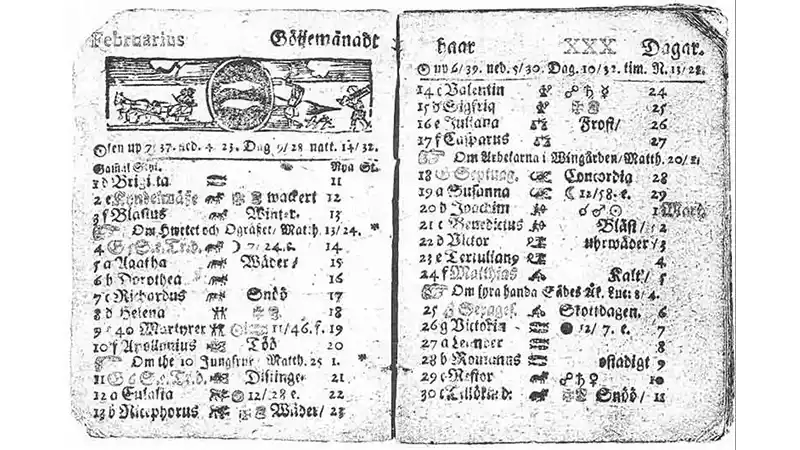 Februarius Göijemånadt
Solen up 7/37. ned. 4 23. Dag 9/28 natt. 14/32.
Gamal Styl. Nya St.
1 d Brigita 11
2 e Kyndelmässe wackert 12
3 f Blasius Winter. 13
Om Hwetet och Ogräset/ Matth. 13/24.
4 G 5 S. e. Tr. d. 7/24. e. 14
5 a Agatha Wäder/ 15
6 b Dorothea 16
7 c Richardus Snöö 17
8 d Helena 18
9 e 40 Martyrer 11/46. f. 19
10 f Apollonius Töö 20
Om the 10 Jungfrur Matth. 25 1.
11 G 6 S. e. Tr. d. Disting 21
12 a Eulalia 12/28 e. 22
13 b Nicephorus Wäder/ 23
haar XXX Dagar.
up 6/39. ned. 5/30. Dag. 10/32. tim. N. 13/28.
14 c Valentin ☍ ♄ ☿ 24
15 d Sigfrid 25
16 e Juliana Frost/ 26
17 f Casparus 27
Om Arbetarna i Wingården/Matth. 20/1.
18 G Septuag. Concordig 28
19 a Susanna ☾ 12/58. e. 29
20 b Joachim ☌ ♂ ☉ 1 Mart.
21 c Benedictus Blåst/ 2
22 d Victor uhrwäder/ 3
23 e Tertuliang 4
24 f Matthias Kalt/ 5
Om fyra handa Sädes Åk. Luc: 8/4.
25 Sexages. Skottdagen. 6
26 g Victorin ● 12/7. e. 7
27 a Leander 8
28 b Romanus ostadigt 9
29 c Nestor ☍ ♄ ♀ 10
30 Snöö/ 11